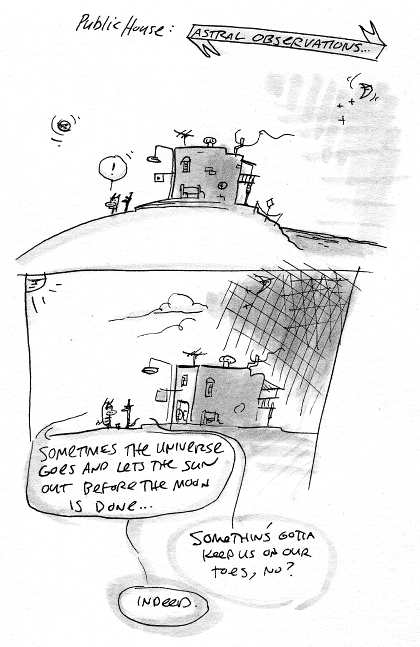 Public House:
ASTRAL OBSERVATIONS...
!
SOMETIMES THE UNIVERSE
GOES AND LETS THE SUN
OUT BEFORE THE MOON
IS DONE...
SOMETHIN'S GOTTA
KEEP US ON OUR
TOES, NO?
INDEED.